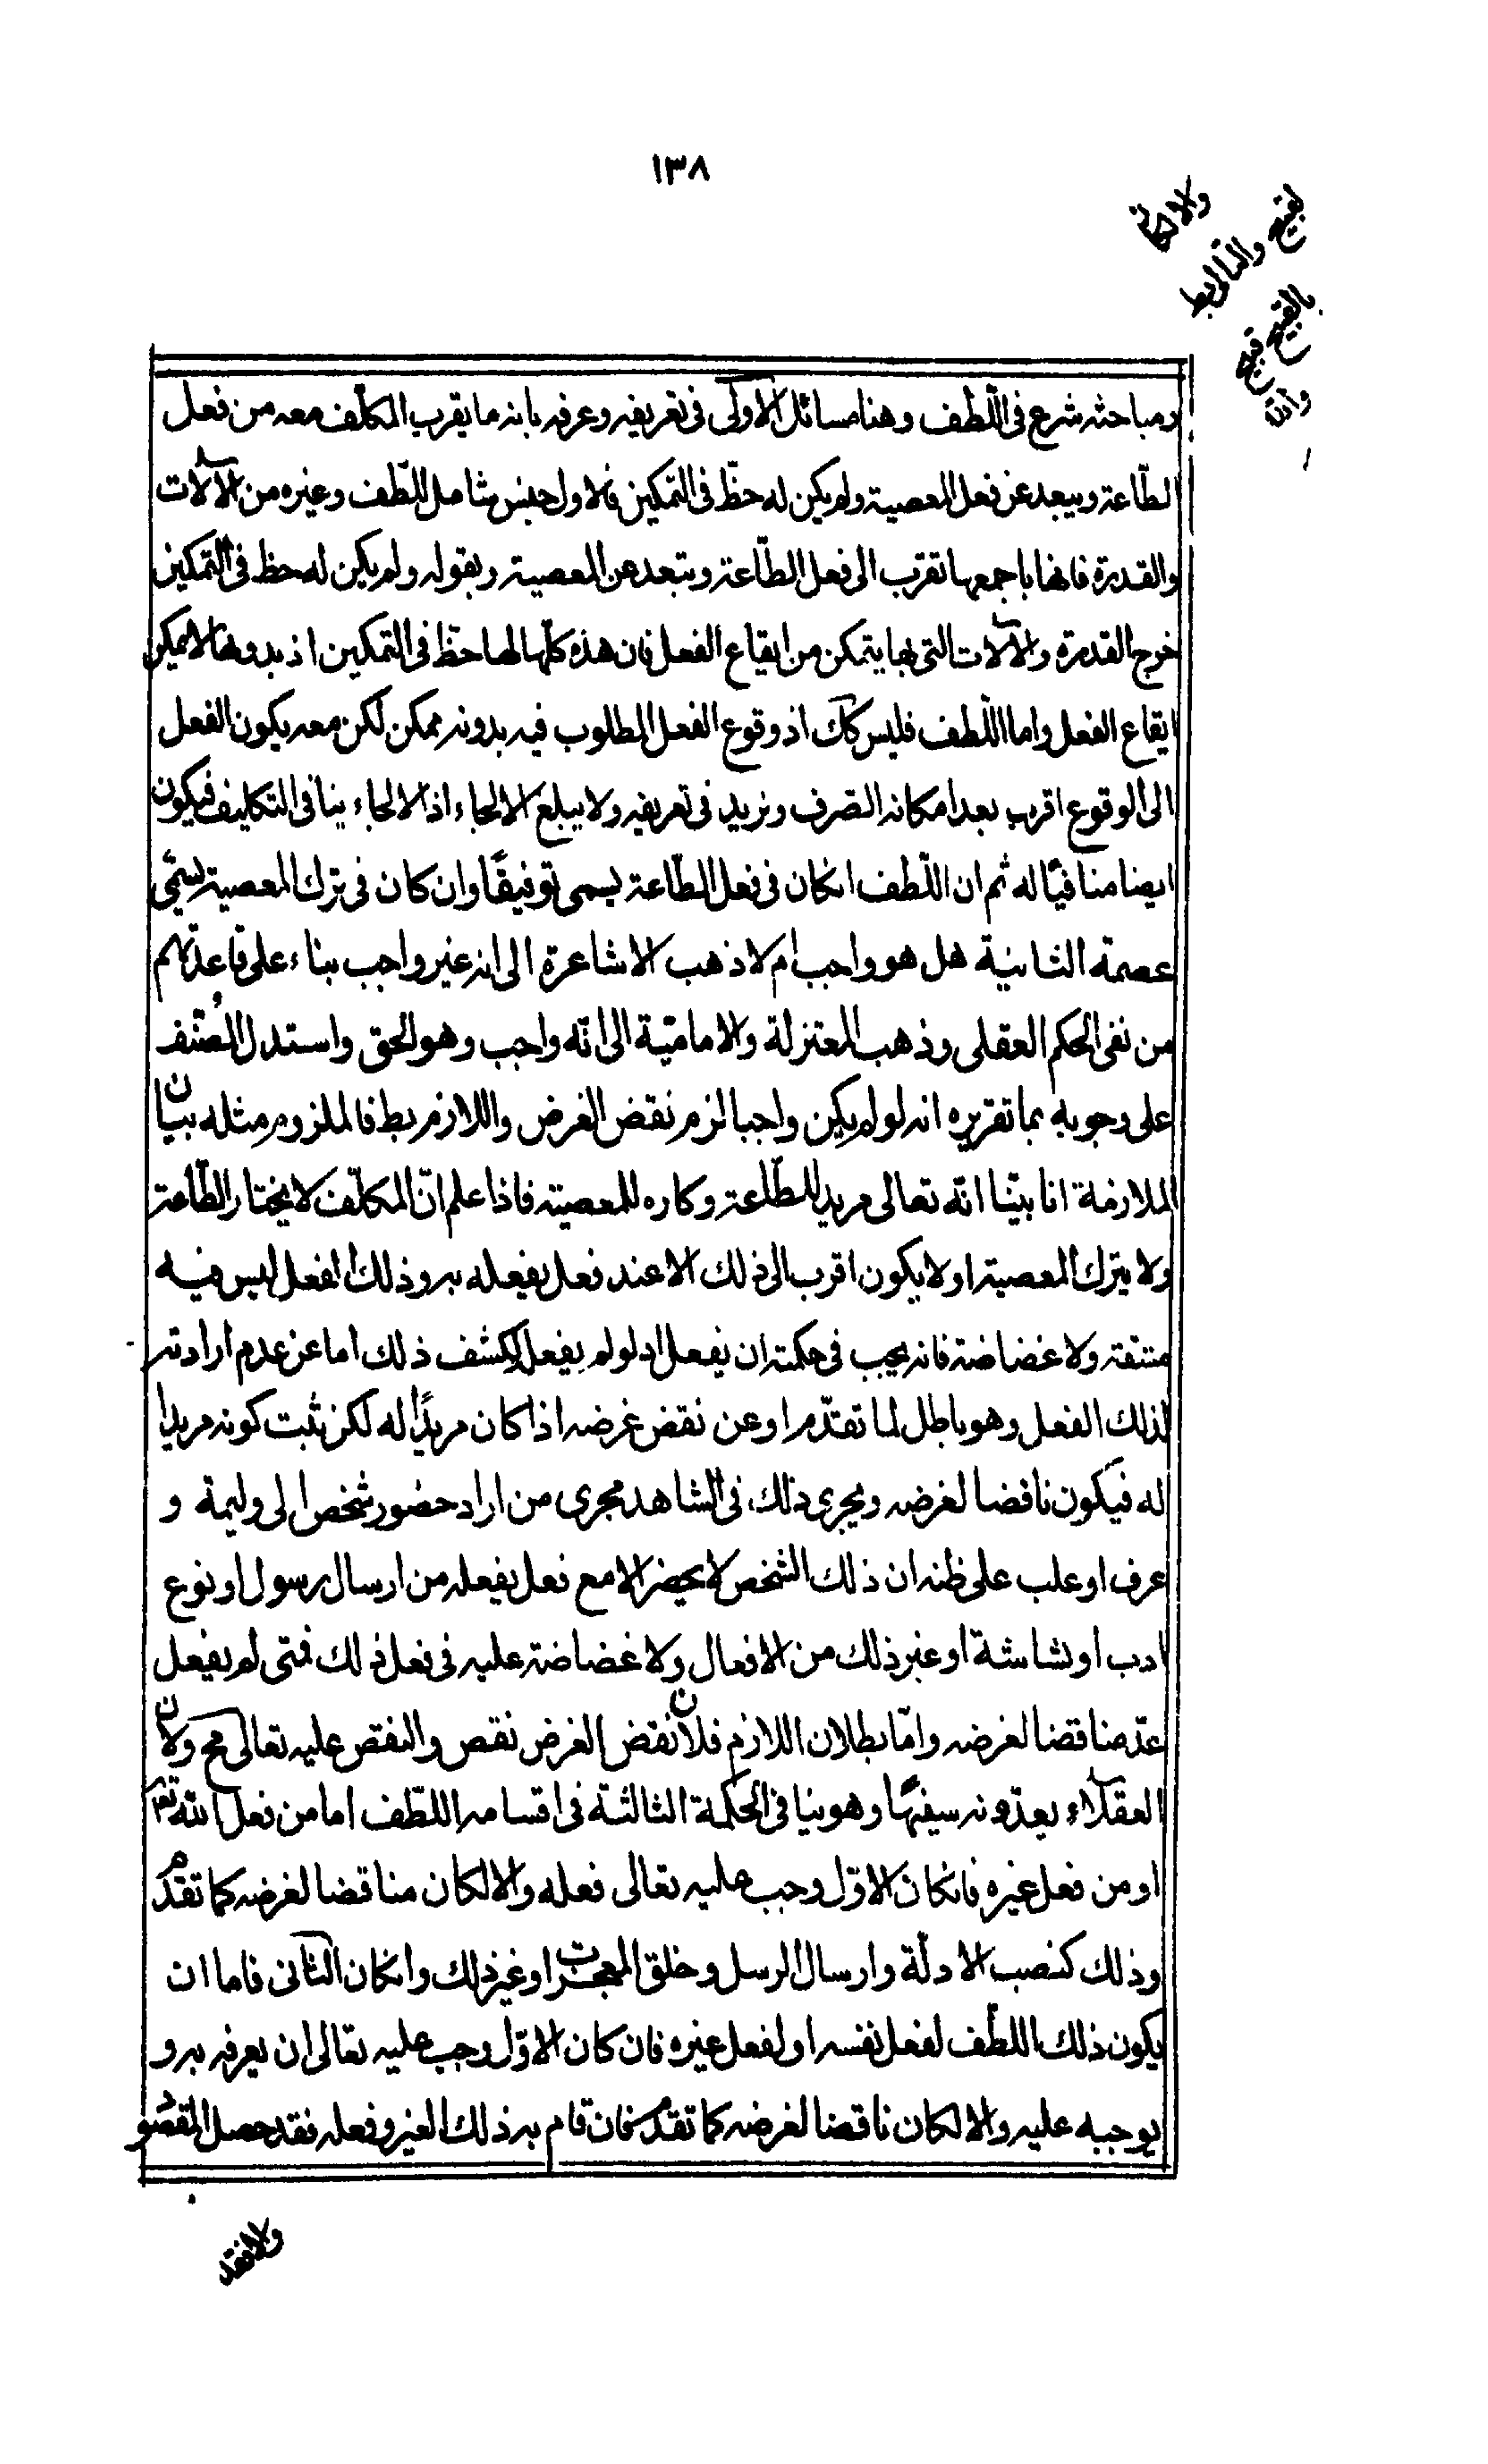 ١٣٨
ومباحثه شرع فى اللّطف وهنا مسائل الاولى فى تعريفه وعرفه بانه ما يقرب المكلّف معه من فعل
الطّاعة ويبعد عن فعل المعصية ولم يكن له حظّ فى التمكين فالاول جنس شامل للّطف وغيره من الآلات
والقدرة فانها باجمعها تقرب الى فعل الطّاعة وتبعد عن المعصية وبقوله ولم يكن له حظ فى التمكين
خرج القدرة والآلات التى بها يتمكن من ايقاع الفعل فان هذه كلّها لها حظّ فى التمكين اذ بدونها لا يمكن
ايقاع الفعل واما اللّطف فليس كك اذ وقوع الفعل المطلوب فيه بدونه ممكن لكن معه يكون الفعل
الى الوقوع اقرب بعد امكانه الصرف ونزيد فى تعريفه ولا يبلغ الالجاء اذ الالجاء ينافى التكليف فيكون
ايضا منافيًا له ثم ان اللّطف انكان فى فعل الطّاعة يسمى توفيقًا وان كان فى ترك المعصية يسمّى
عصمة الثانية هل هو واجب ام لا ذهب الاشاعرة الى انه غير واجب بناء على قاعدتهم
من نفى الحكم العقلى وذهب المعتزلة والاماميّة الى انّه واجب وهو الحق واستدل المصنّف
على وجوبه بما تقريره انه لو لم يكن واجبا لزم نقض الغرض واللازم بط فالملزوم مثله بيان
الملازمة انا بيّنا انّه تعالى مريد للطّاعة وكاره للمعصية فاذا علم انّ المكلّف لا يختار الطّاعة
ولا يترك المعصية او لا يكون اقرب الى ذلك الا عند فعل يفعله به وذلك الفعل ليس فيه
مشقة ولا غضاضة فانه يجب فى حكمته ان يفعله اذ لو لم يفعل لكشف ذلك اما عن عدم ارادته
لذلك الفعل وهو باطل لما تقدّم او عن نقض غرضه اذا كان مريدًا له لكن ثبت كونه مريدا
له فيكون ناقضا لغرضه ويجرى ذلك فى الشاهد مجرى من اراد حضور شخص الى وليمة و
عرف او غلب على ظنه ان ذلك الشخص لا يحضر الا مع فعل يفعله من ارسال رسول او نوع
ادب او بشاشة او غير ذلك من الافعال ولا غضاضة عليه فى فعل ذلك فمتى لم يفعل
عدّ مناقضا لغرضه وامّا بطلان اللازم فلان نقض الغرض نقص والنقص عليه تعالى مح ولان
العقلاء يعدّونه سفيهًا وهو ينافى الحكمة الثالثة فى اقسامه اللطّف اما من فعل اللّه تعم
او من فعل غيره فانكان الاوّل وجب عليه تعالى فعله والا لكان مناقضا لغرضه كما تقدّم
وذلك كنصب الادلّة وارسال الرسل وخلق المعجزات او غير ذلك وانكان الثانى فاما ان
يكون ذلك اللطّف لفعل نفسه او لفعل غيره فان كان الاوّل وجب عليه تعالى ان يعرفه به و
يوجبه عليه والا لكان ناقضا لغرضه كما تقدم فان قام به ذلك الغير وفعله فقد حصل المقصو
ولا فقد